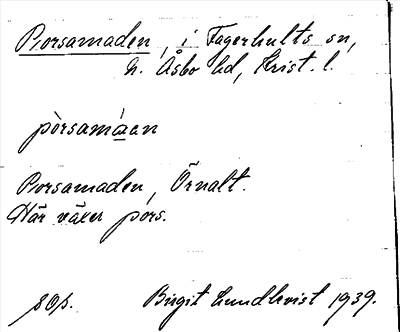 Porsamaden, i Fagerhults sn,
N. Åsbo hd, Krist. l.
pòrsamáan
Porsamaden, Örnalt.
Här växer pors.
sOs. Birgit Lundkvist 1939.